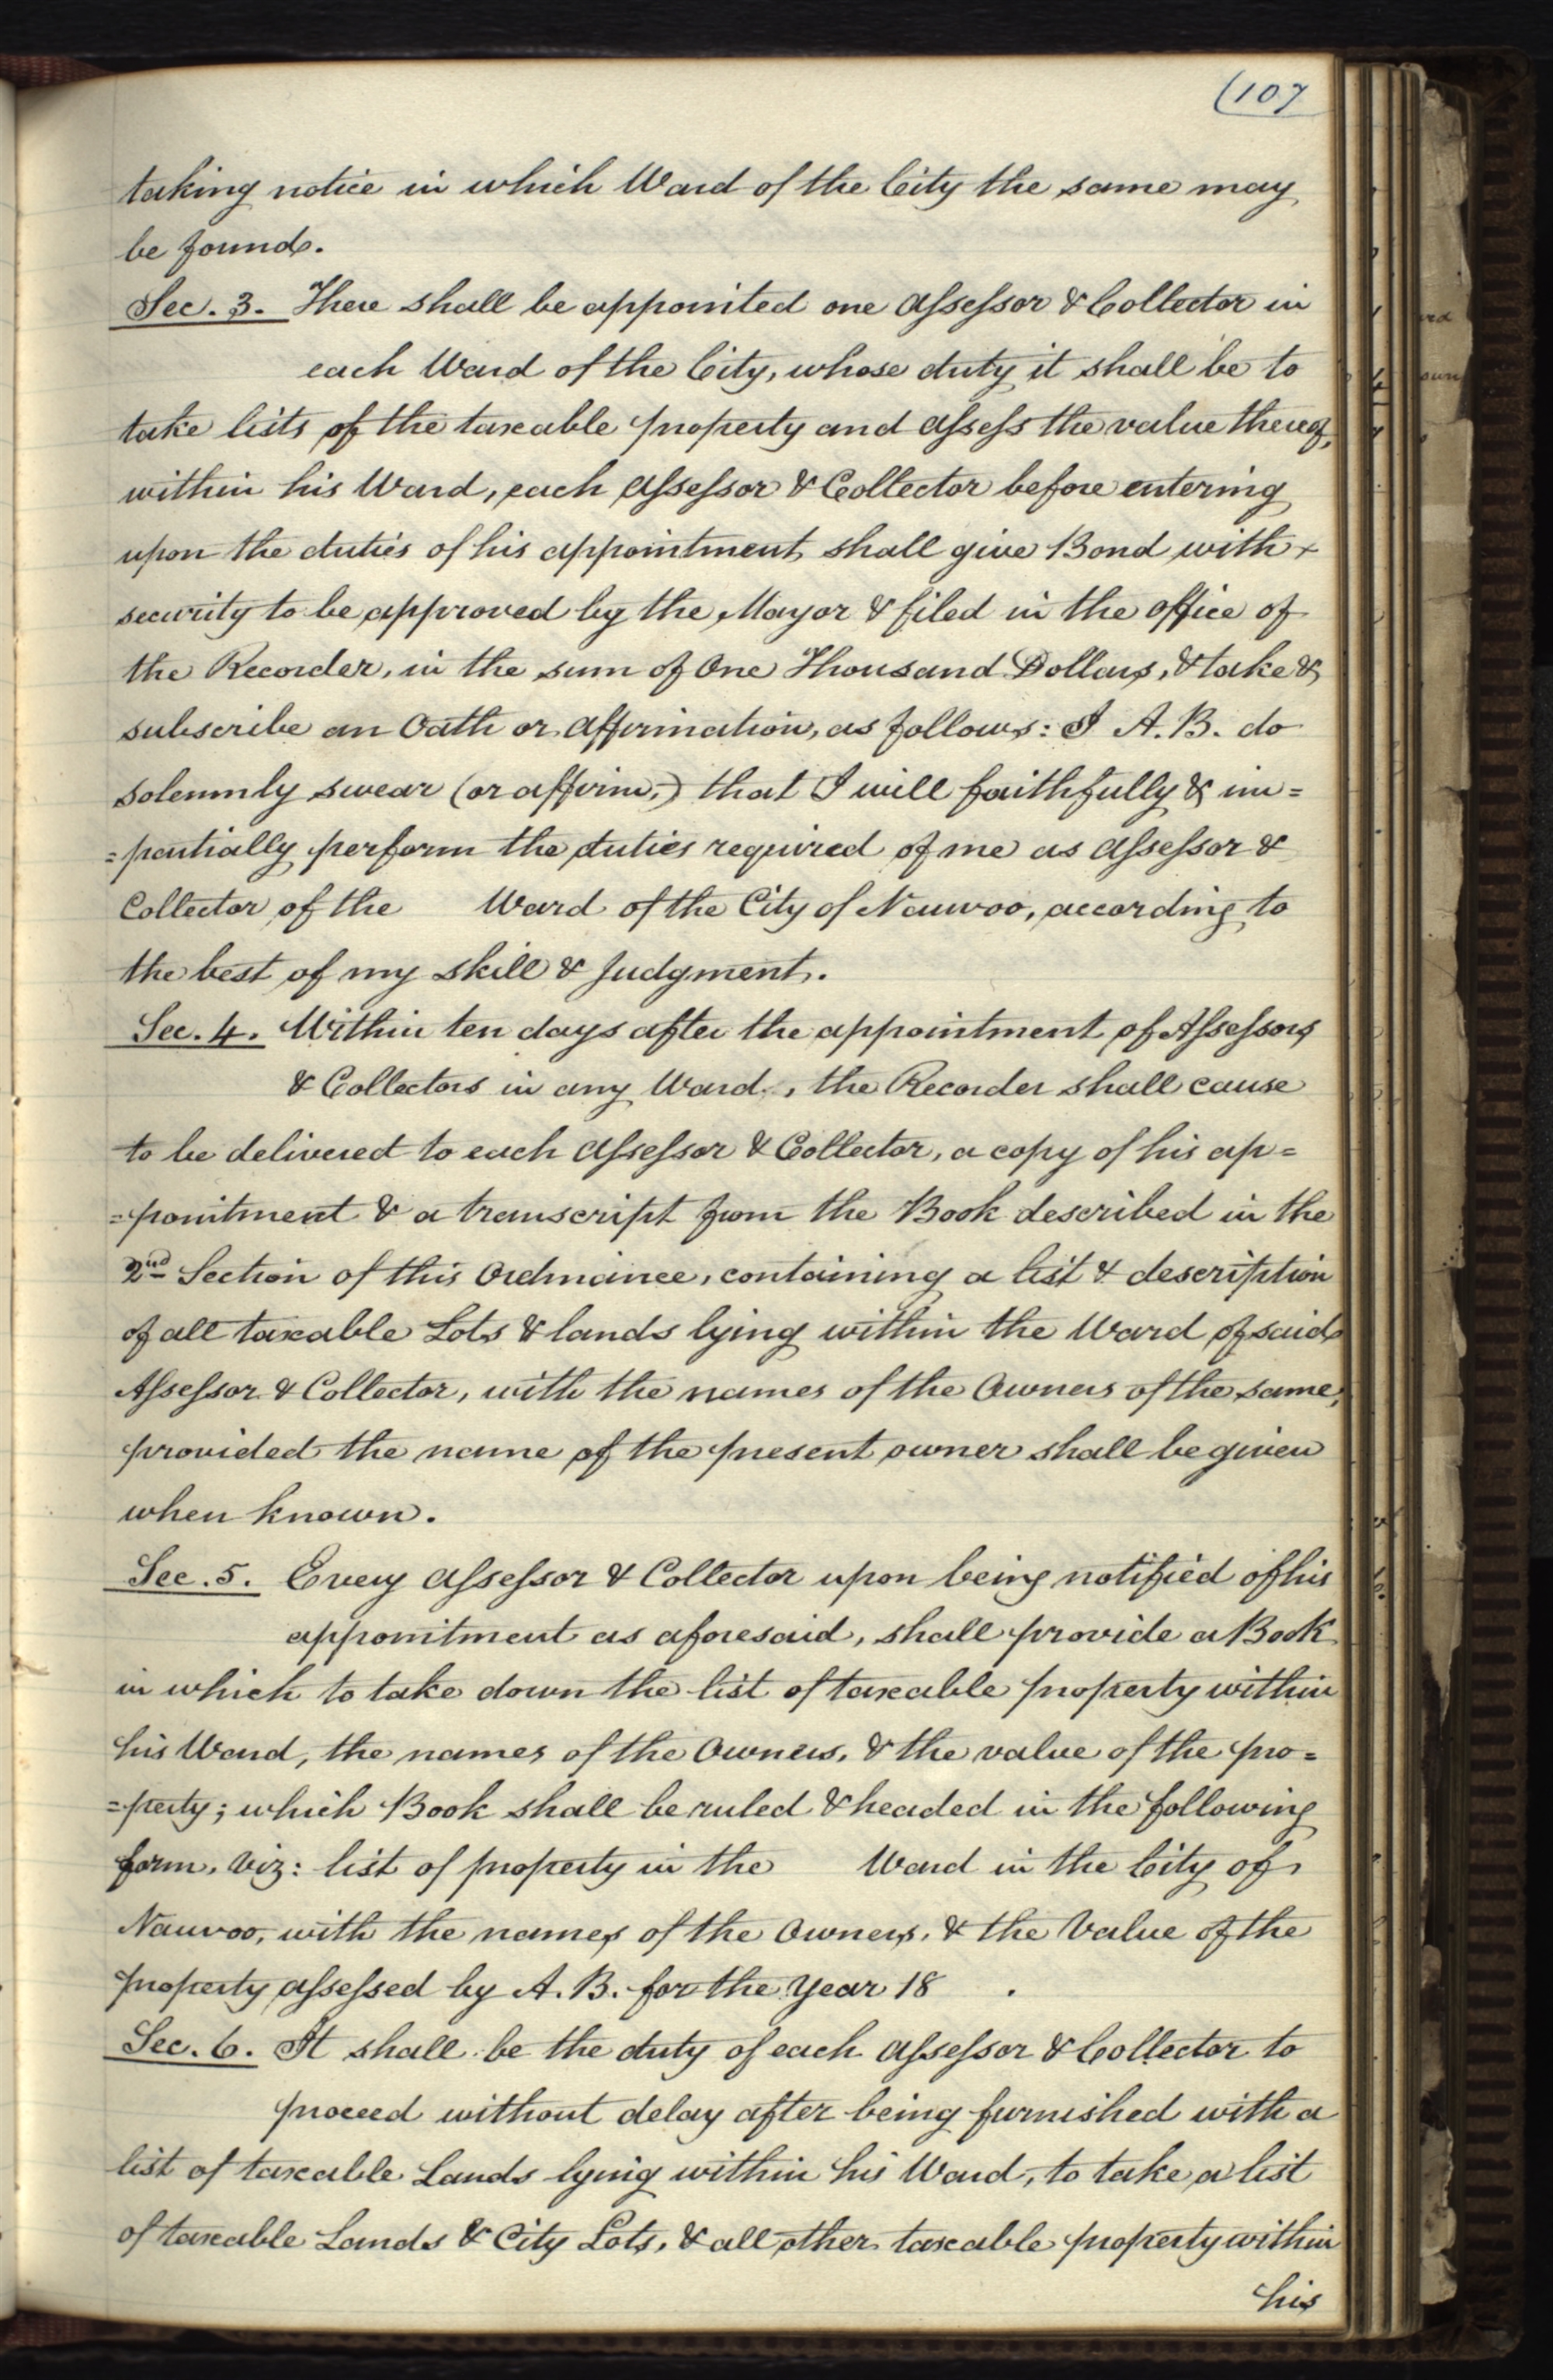 (107
taking notice in which Ward of the City the same may
be found.
Sec. 3. There shall be appointed one Assessor & Collector in
each Ward of the City, whose duty it shall be to
take lists of the taxable property and assess the value thereof,
within his Ward, each Assessor & Collector before entering
upon the duties of his appointment shall give Bond with
security to be approved by the Mayor & filed in the office of
the Recorder, in the sum of One Thousand Dollars, & take &
subscribe an Oath or affirmation, as follows: I A. B. do
solemnly swear (or affirm,) that I will faithfully & im=
=partially perform the duties required of me as Assessor &
Collector of the Ward of the City of Nauvoo, according to
the best of my skill & Judgment.
Sec. 4. Within ten days after the appointment of Assessors
& Collectors in any Ward, the Recorder shall cause
to be delivered to each Assessor & Collector, a copy of his ap=
=pointment & a transcript from the Book described in the
2nd Section of this Ordinance, containing a list & description
of all taxable Lots & lands lying within the Ward of said
Assessor & Collector, with the names of the Owners of the same,
provided the name of the present owner shall be given
when known.
Sec. 5. Every Assessor & Collector upon being notified of his
appointment as aforesaid, shall provide a Book
in which to take down the list of taxable property within
his Ward, the names of the Owners, & the value of the pro=
=perty; which Book shall be ruled & headed in the following
form, viz: list of property in the Ward in the City of
Nauvoo, with the names of the Owners, & the Value of the
property assessed by A. B. for the Year 18 .
Sec. 6. It shall be the duty of each Assessor & Collector to
proceed without delay after being furnished with a
list of taxable Lands lying within his Ward, to take a list
of taxable Lands & City Lots, & all other taxable property within
his